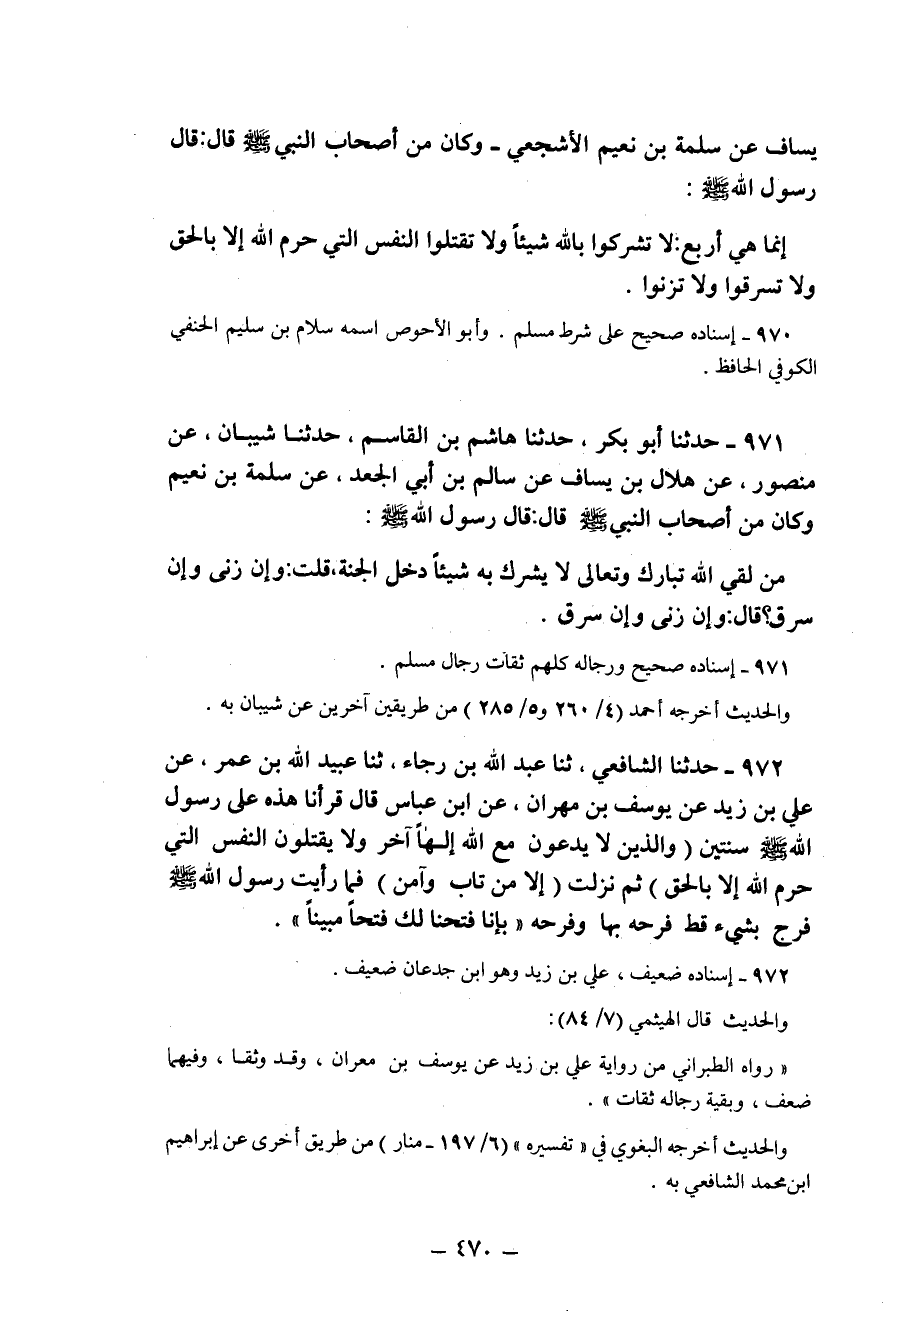 يساف عن سلمة بن نعيم الأشجعي ـ وكان من أصحاب النبي ﷺ قال:قال
رسول الله ﷺ :
إنما هي أربع:لا تشركوا بالله شيئاً ولا تقتلوا النفس التي حرم الله إلا بالحق
ولا تسرقوا ولا تزنوا .
٩٧٠ ـ إسناده صحيح على شرط مسلم . وأبو الأحوص اسمه سلام بن سليم الحنفي
الكوفي الحافظ .
٩٧١ ـ حدثنا أبو بكر ، حدثنا هاشم بن القاسم ، حدثنا شيبان ، عن
منصور ، عن هلال بن يساف عن سالم بن أبي الجعد ، عن سلمة بن نعيم
وكان من أصحاب النبي ﷺ قال:قال رسول الله ﷺ :
من لقي الله تبارك وتعالى لا يشرك به شيئاً دخل الجنة،قلت:وإن زنى وإن
سرق؟قال:وإن زنى وإن سرق .
٩٧١ ـ إسناده صحيح ورجاله كلهم ثقات رجال مسلم .
والحديث أخرجه أحمد (٤/ ٢٦٠ و٥/ ٢٨٥ ) من طريقين آخرين عن شيبان به .
٩٧٢ ـ حدثنا الشافعي ، ثنا عبد الله بن رجاء ، ثنا عبيد الله بن عمر ، عن
علي بن زيد عن يوسف بن مهران ، عن ابن عباس قال قرأنا هذه على رسول
الله ﷺ سنتين ( والذين لا يدعون مع الله إلـهاً آخر ولا يقتلون النفس التي
حرم الله إلا بالحق ) ثم نزلت ( إلا من تاب وآمن ) فما رأيت رسول الله ﷺ
فرح بشيء قط فرحه بها وفرحه « بإنا فتحنا لك فتحاً مبيناً » .
٩٧٢ ـ إسناده ضعيف ، علي بن زيد وهو ابن جدعان ضعيف .
والحديث قال الهيثمي (٧/ ٨٤):
« رواه الطبراني من رواية علي بن زيد عن يوسف بن معران ، وقد وثقا ، وفيهما
ضعف ، وبقية رجاله ثقات » .
والحديث أخرجه البغوي في « تفسيره » (٦/ ١٩٧ ـ منار ) من طريق أخرى عن إبراهيم
ابن محمد الشافعي به .
ـ ٤٧٠ ـ